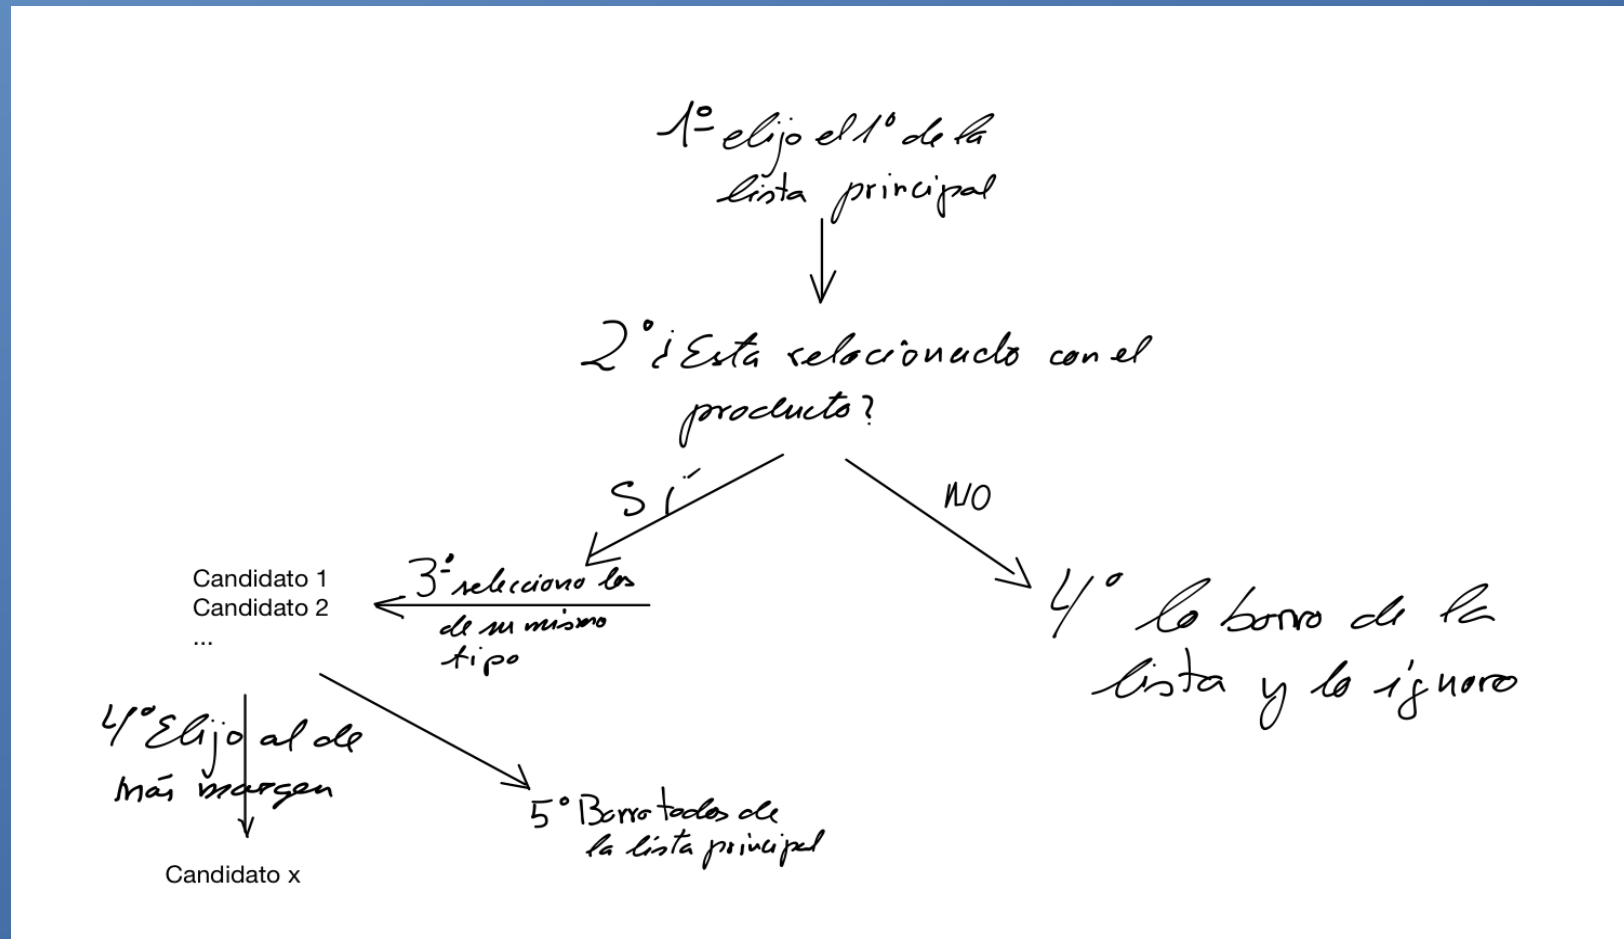 1º elijo el 1º de la
lista principal
2º ¿Esta relacionado con el
producto?
Sí
NO
3º selecciono los
de su mismo
tipo
Candidato 1
Candidato 2
...
4º lo borro de la
lista y lo ignoro
4º Elijo al de
más margen
5º Borro todos de
la lista principal
Candidato x